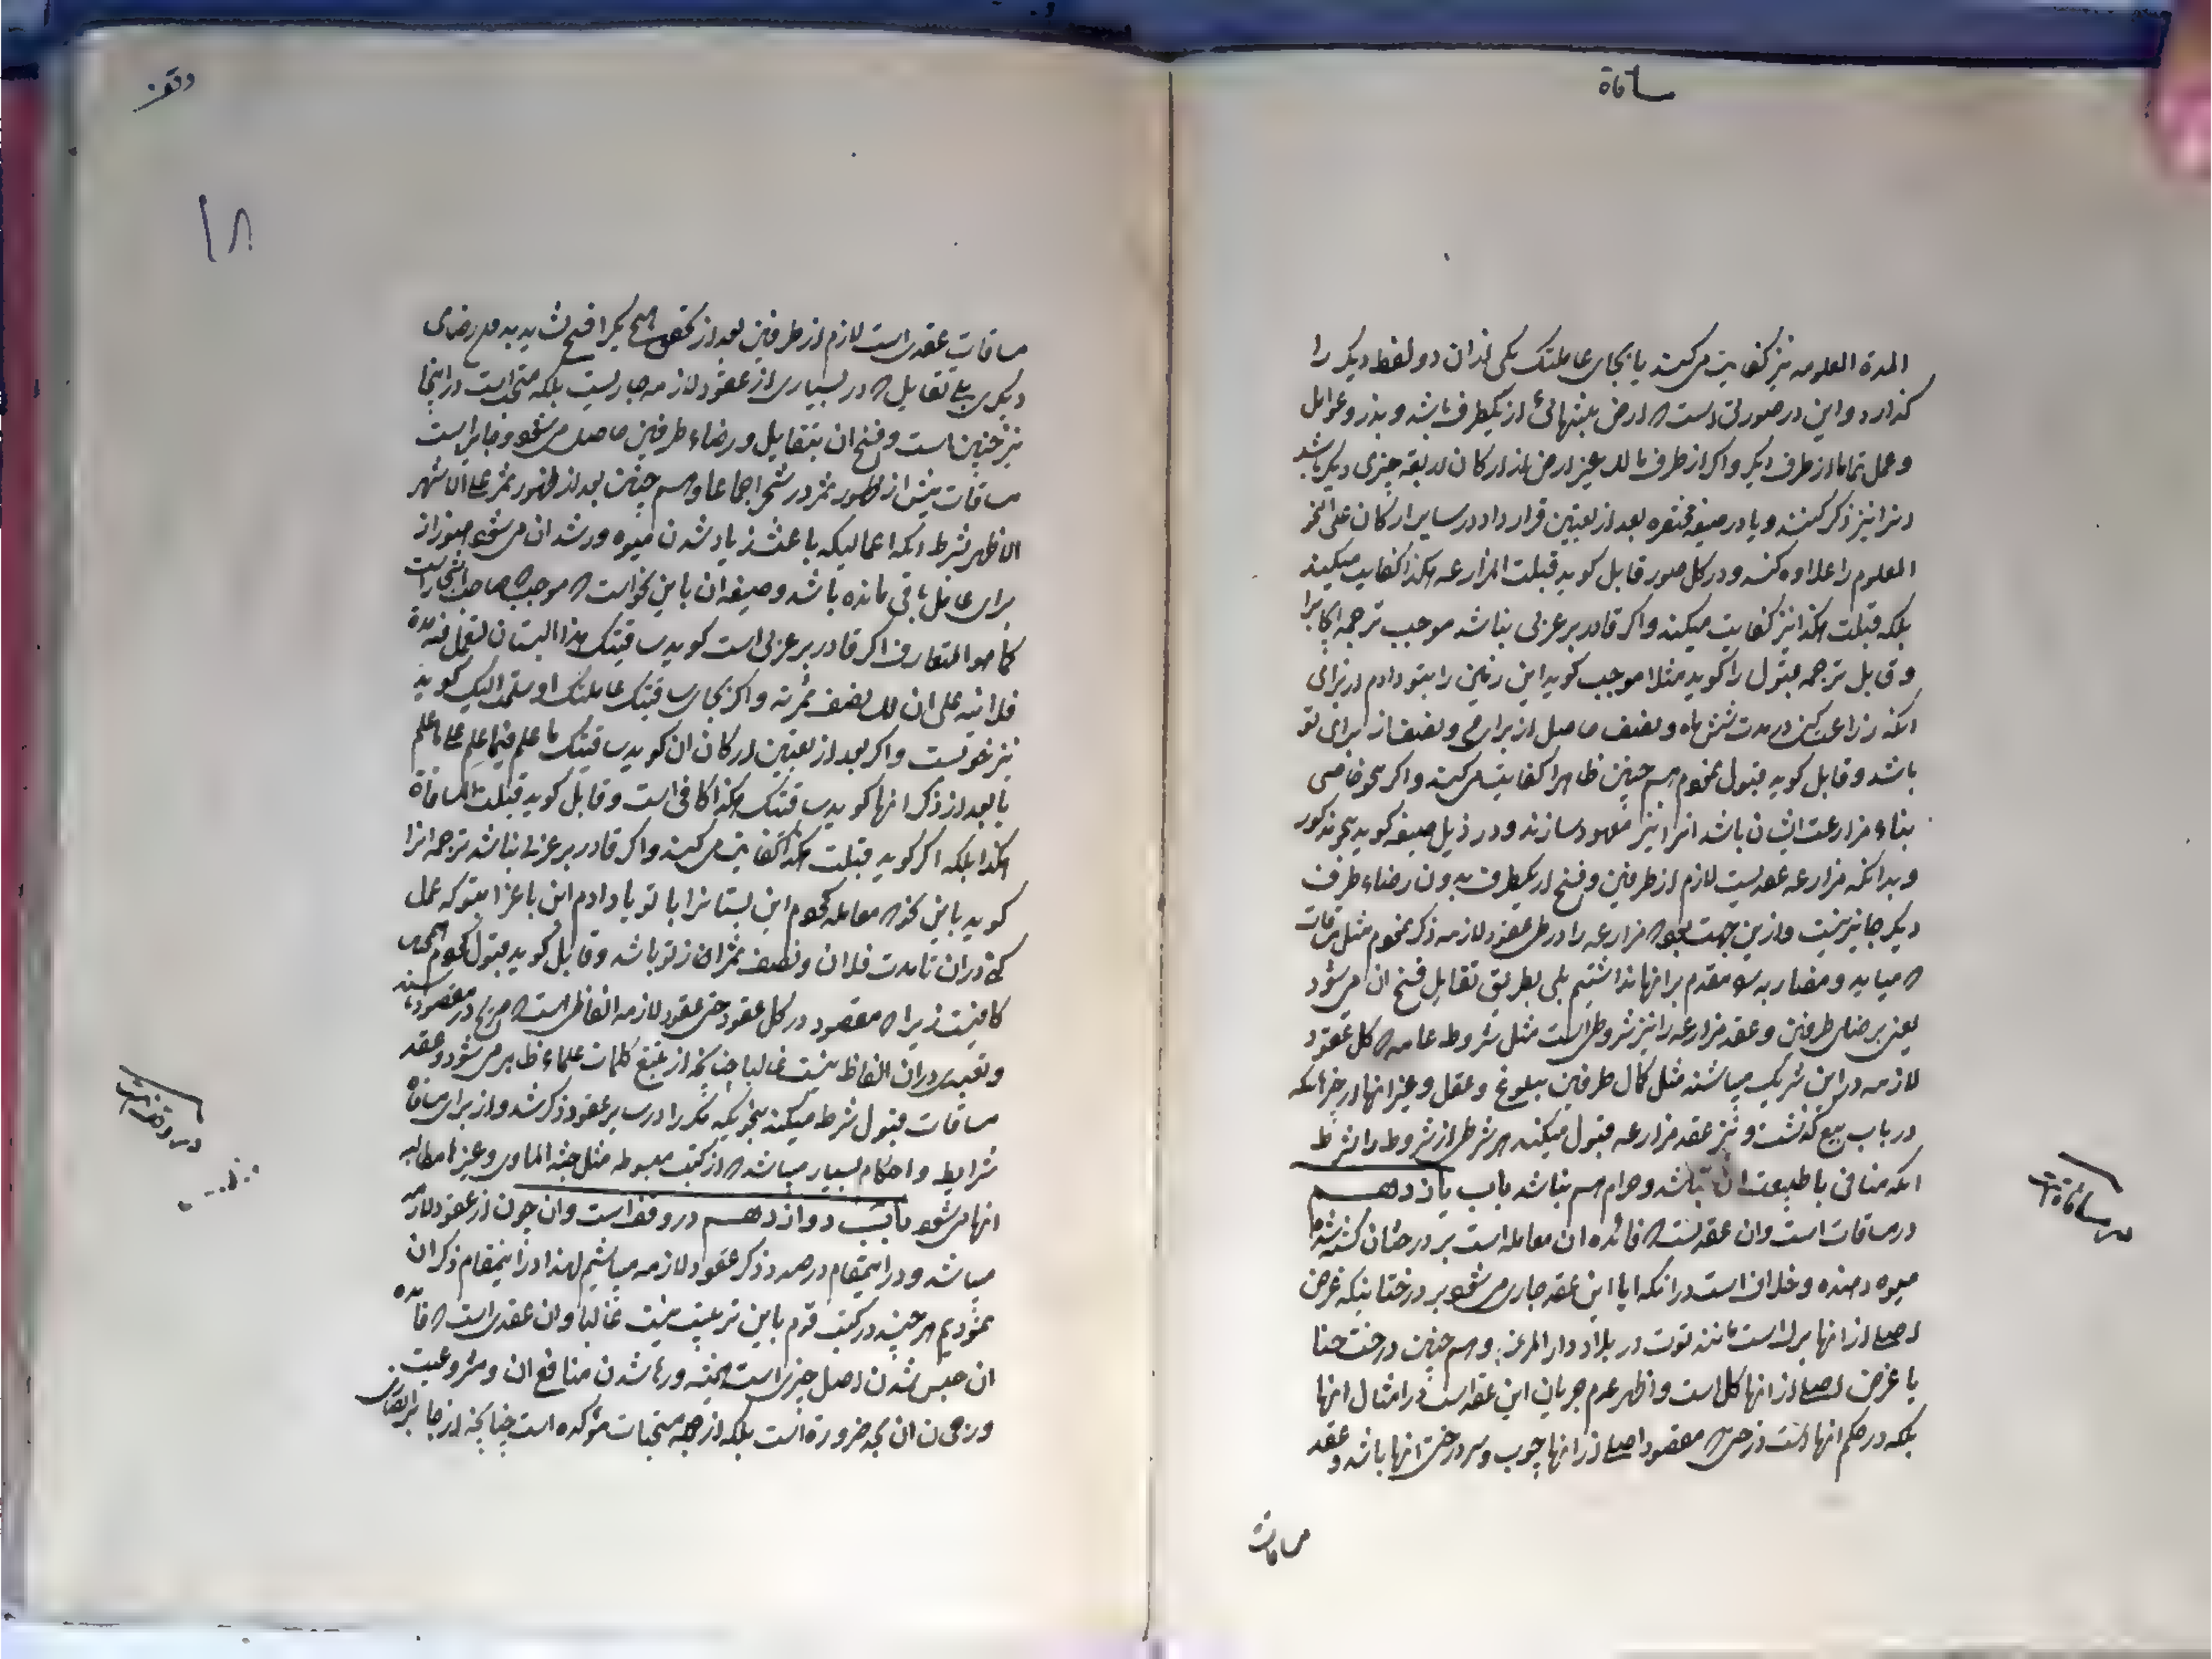 مساقاة
المدة المعلومه نیز کفایت میکند یا بجای عاملتک یکی از ان دو لفظ دیکر را
کذارد و این در صورتی است که ارض بتنهائی از یکطرف باشد و بذر و عوامل
و عمل تماما از طرف دیکر و اکر از طرف مالک غیر ارض از ارکان اربعه چیزی دیکر باشد
انرا نیز ذکر کنند و یا در صیغه مختصره بعد از تعیین قرارداد در سایر ارکان علی النحو
المعلوم را علاوه کند و در کل صور قابل کوید قبلت المزارعه هکذا کفایت میکند
بلکه قبلت هکذا نیز کفایت میکند و اکر قادر بر عربی نباشد موجب ترجمه ایجاب را
و قابل ترجمه قبول را کوید مثلا موجب کوید این زمین را بتو دادم از برای
انکه زراعت کنی در مدت شش ماه و نصف حاصل از برای من و نصف از برای تو
باشد و قابل کوید قبول نمودم هم چنین ظاهرا کفایت میکند و اکر بنحو خاصی
بناء مزارعت ایشان باشد انرا نیز معهود سازند و در ذیل صیغه کوید بنحو مذکور
و بدانکه مزارعه عقدیست لازم از طرفین و فسخ از یکطرف بدون رضاء طرف
دیکر جایز نیست و ازین جهت بود که مزارعه را در طی عقود لازمه ذکر نمودم مثل مساقات
که میاید و مضاربه را مقدم بر انها نداشتیم بلی بطریق تقایل فسخ ان میشود
یعنی برضای طرفین و عقد مزارعه را نیز شروطی است مثل شروط عامه که کل عقود
لازمه در این شریک میباشند مثل کمال طرفین ببلوغ و عقل و غیر انها از چیزهائیکه
در باب بیع کذشت و نیز عقد مزارعه قبول میکند هر شرطی از شروط را بشرط
انکه منافی با طبیعت ان نباشد و حرام هم نباشد باب یازدهم
در مساقات است و ان عقدیست که فائده ان معامله است بر درختان کشته شده
میوه دهنده و خلاف است در انکه ایا این عقد جاری میشود بر درختانیکه غرض
اصلی از انها برک است مانند توت در بلاد دار المرز و هم چنین درخت حنا
یا غرض اصلی از انها کل است و اظهر عدم جریان این عقد است در امثال انها
بلکه در حکم انها است درختی که مقصود اصلی از انها چوب و سردرختی انها باشد و عقد
مساقات
در مساقاتست
وقف
۱۸
مساقات عقدی است لازم از طرفین بعد از تحقق هیچ یکرا فسخ نشاید بدون رضای
دیکری بلی تقایل که در بسیاری از عقود لازمه جاریست بلکه مستحب است در اینجا
نیز چنین است و فسخ ان بتقایل و رضاء طرفین حاصل میشود و جایز است
مساقات پیش از ظهور ثمر در شجر اجماعا و هم چنین بعد از ظهور ثمر علی الاشهر
الاظهر بشرط انکه اعمالیکه باعث زیاد شدن میوه و رشد ان میشود هنوز از
برای عامل باقی مانده باشد و صیغه ان باین نحو است که موجب که صاحب اشجار است
کما هو المتعارف اکر قادر بر عربی است کوید ساقیتک هذا البستان لتعمل فیه مدة
فلانیه علی ان لک نصف ثمرته و اکر بجای ساقیتک عاملتک او سلمت الیک کوید
نیز خوبست و اکر بعد از تعیین ارکان ان کوید ساقیتک ما علم فیما علم علی ما علم
یا بعد از ذکر انها کوید ساقیتک هکذا کافی است و قابل کوید قبلت المساقاة
هکذا بلکه اکر کوید قبلت هکذا کفایت میکند و اکر قادر بر عربی نباشد ترجمه انرا
کوید باین نحو که معامله نمودم این بستانرا با تو یا دادم این باغرا بتو که عمل
کنی در ان تا مدت فلان و نصف ثمر ان از تو باشد و قابل کوید قبول نمودم همچنین
کافیست زیرا که مقصود در کل عقود حتی عقود لازمه الفاظی است که صریح در مقصود باشند
و تعبدی در ان الفاظ نیست غالبا چنانچه از تتبع کلمات علماء ظاهر میشود و عقد
مساقات قبول شرط میکند بنحویکه مکرر در سایر عقود ذکر شد و از برای مساقاة
شرایط و احکام بسیار میباشد که از کتب مبسوطه مثل جنة الماوی و غیر ان مطالبه
انها میشود باب دوازدهم در وقف است و ان چون از عقود لازمه
میباشد و در اینمقام در صدد ذکر عقود لازمه میباشیم لهذا در اینمقام ذکر ان
نمودیم هر چند در کتب قوم باین ترتیب نیست غالبا و ان عقدی است که فائده
ان حبس شدن اصل چیزی است همیشه و رها شدن منافع ان و مشروعیت
و رجحان ان بحد ضرورة است بلکه از جمله مستحبات مؤکده است چنانچه از جابر انصاری
در وقف است